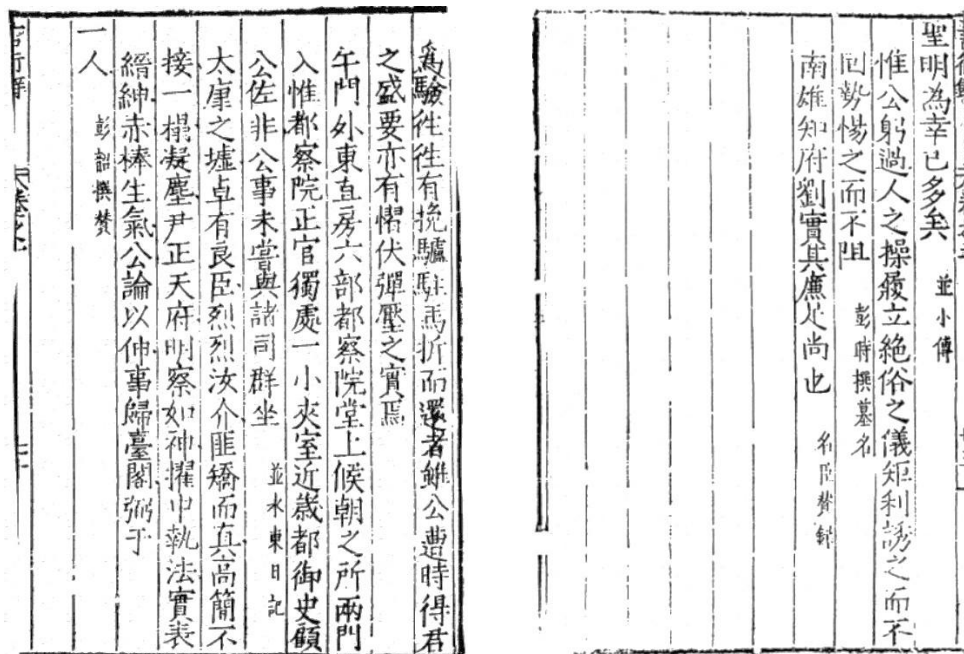 聖明為幸已多矣 並小傳
惟公躬過人之操履立絕俗之儀矩利誘之而不
回勢惕之而不阻 彭時撰墓名
南雄知府劉實其廉足尚也 名臣贊錄
為驗徃徃有挽驢駐馬折而還者雖公遭時得君
之盛要亦有慴伏彈壓之實焉
午門外東直房六部都察院堂上候朝之所兩門
入惟都察院正官獨處一小夾室近歲都御史顧
公佐非公事未嘗與諸司群坐 並水東日記
太康之墟卓有良臣烈烈汝介匪矯而真高簡不
接一榻凝塵尹正天府明察如神擢中執法實表
縉紳赤棒生氣公論以伸事歸臺閣弼于
一人 彭韶撰贊